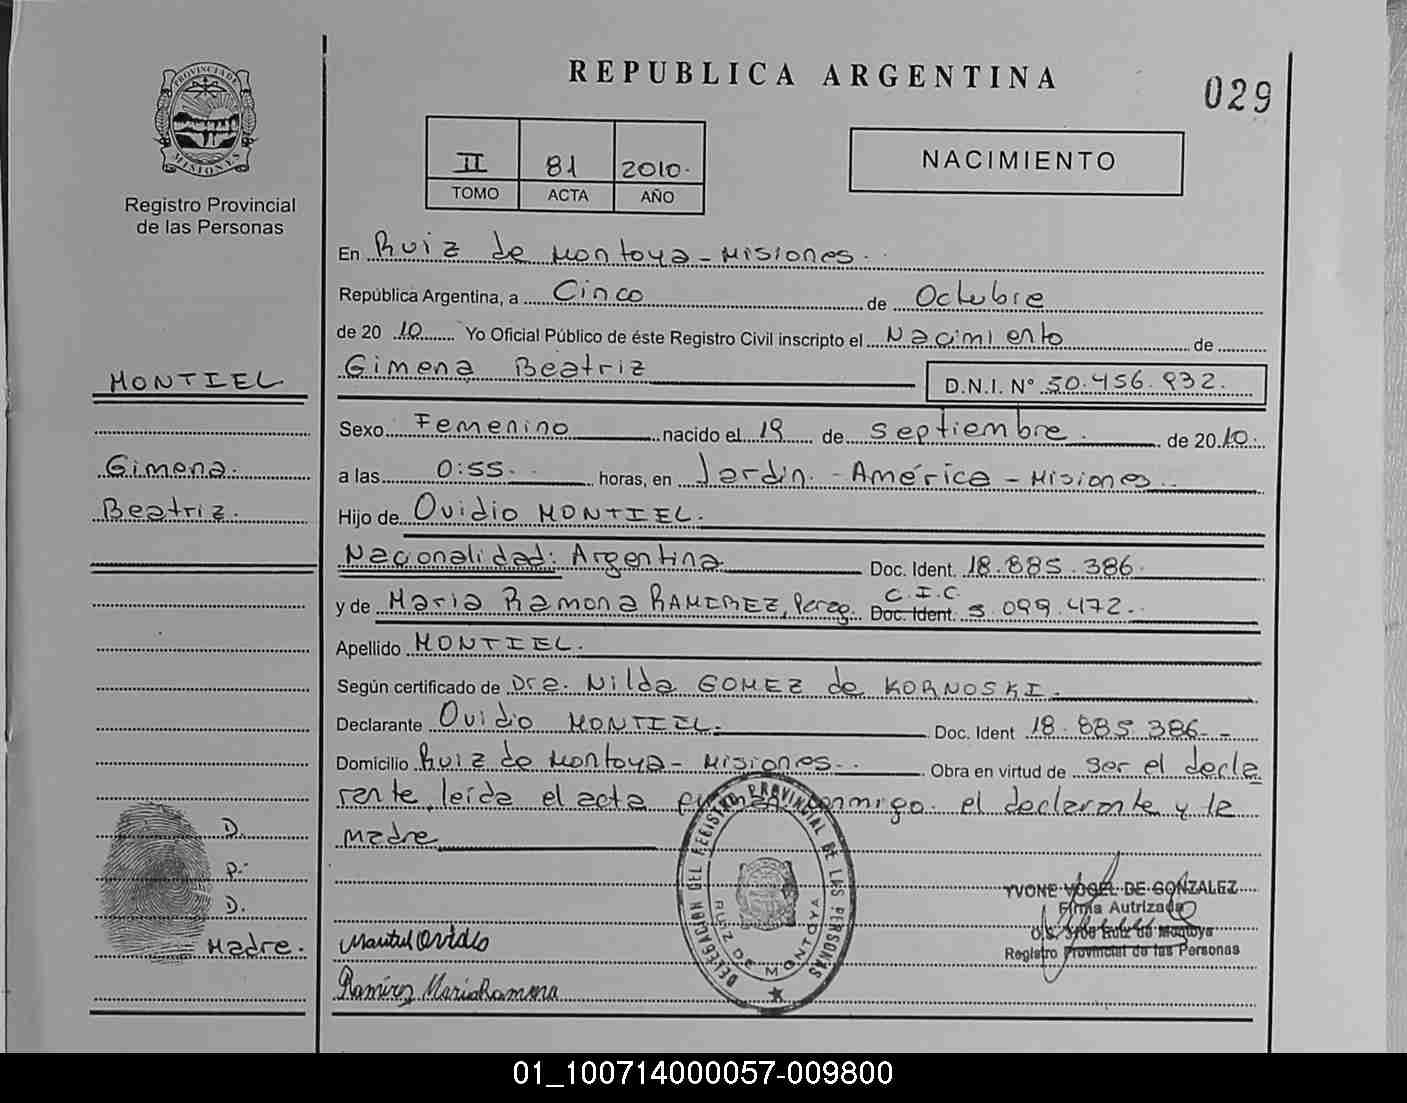 REPUBLICA ARGENTINA
029
PROVINCIA DE MISIONES
Registro Provincial
de las Personas
II 81 2010.
TOMO ACTA AÑO
NACIMIENTO
En Ruiz de Montoya - Misiones.
República Argentina, a Cinco de Octubre
de 20 10 Yo Oficial Público de éste Registro Civil inscripto el Nacimiento de
Gimena Beatriz D.N.I. N° 50.456.932.
Sexo Femenino nacido el 19 de septiembre. de 20 10.
a las 0:55. horas, en Jardín. - América - Misiones.
Hijo de Ovidio MONTIEL.
Nacionalidad: Argentina Doc. Ident. 18.885.386.
C.I.C.
y de Maria Ramona RAMIREZ, Parag. Doc. Ident. 5.099.472.
Apellido MONTIEL.
Según certificado de Dra. Nilda GOMEZ de KORNOSKI.
Declarante Ovidio MONTIEL. Doc. Ident 18.885.386.-
Domicilio Ruiz de Montoya - Misiones. Obra en virtud de ser el decla
rante, leída el acta firman conmigo. el declarante y la
madre
MONTIEL
Gimena.
Beatriz.
D.
P.
D.
Madre.
Montiel Ovidio
Ramírez Maria Ramona
DELEGACION DEL REGISTRO PROVINCIAL DE LAS PERSONAS
RUIZ DE MONTOYA
YVONE VOGEL DE GONZALEZ
Firma Autrizada
Ruiz de Montoya
Registro Provincial de las Personas
01_100714000057-009800